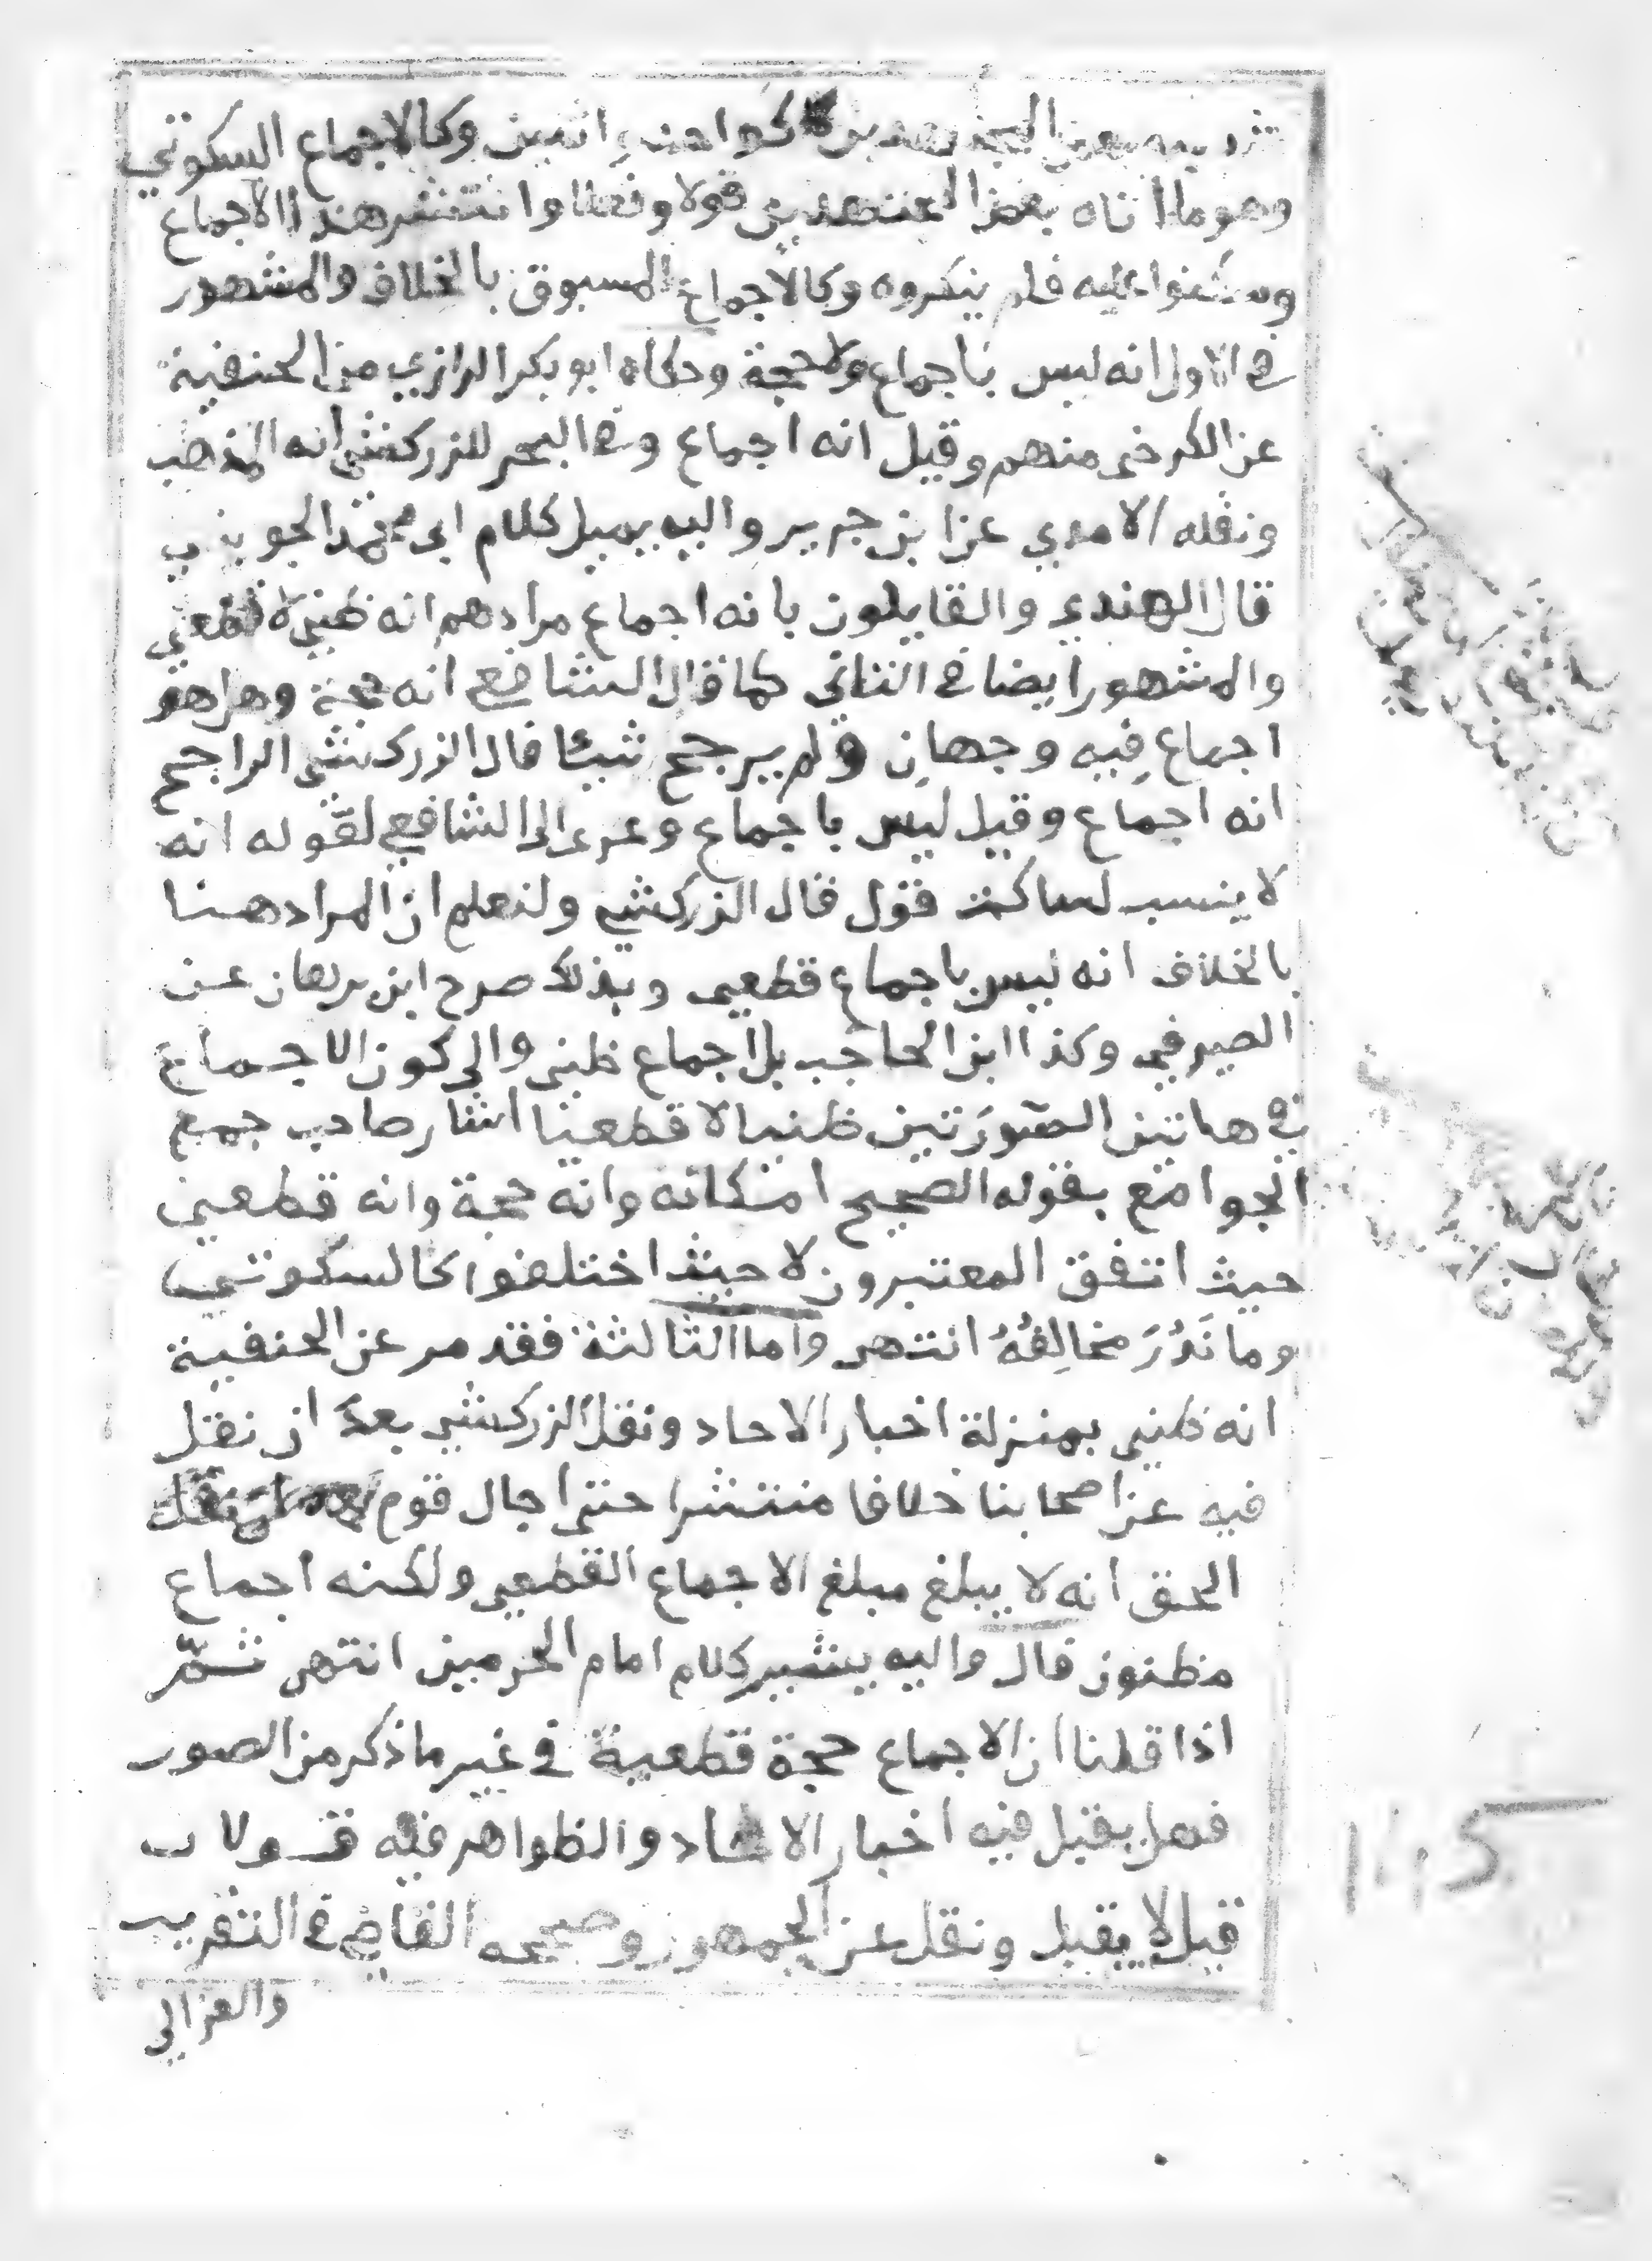 بعض المجتهدين كواحد اثنين وكالاجماع السكوتي
وهو ما اتاه بعض المجتهدين قولا وفعلا وانتشر هذا الاجماع
وسكتوا عليه فلم ينكروه وكالاجماع المسبوق بالخلاف والمشهور
في الاول انه ليس باجماع ولا حجة وحكاه ابو بكر الرازي من الحنفية
عن الكرخي منهم وقيل انه اجماع وفي البحر للزركشي انه المذهب
ونقله الامدي عن ابن جرير واليه يميل كلام ابي محمد الجويني
قال الهندي والقايلون بانه اجماع مرادهم انه ظني لا قطعي
والمشهور ايضا في الثاني كما قال الشافعي انه حجة وهل هو
اجماع فِيه وجهانِ ولم يرجح شيئا قال الزركشي الراجح
انه اجماع وقيل ليس باجماع وعزي الى الشافعي لقوله انه
لا ينسب لساكت قول قال الزركشي ولنعلم ان المراد هنا
بالخلاف انه ليس باجماع قطعي وبذلك صرح ابن برهان عن
الصيرفي وكذا ابن الحاجب بل اجماع ظني والى كون الاجماع
في هاتين الصورَتين ظنيا لا قطعيا اشار صاحب جمع
الجوامع بقوله الصحيح امكانه وانه حجة وانه قطعي
حيث اتفق المعتبرون لا حيث اختلفوا كالسكوتي
وما نَدُرَ مخالِفُهُ انتهى واما الثالثة فقد مر عن الحنفية
انه ظني بمنزلة اخبار الاحاد ونقل الزركشي بعد ان نقل
فيه عن اصحابنا خلافا منتشرا حتى اجال قوم
الحق انه لا يبلغ مبلغ الاجماع القطعي ولكنه اجماع
مظنون قال واليه يشير كلام امام الحرمين انتهى ثمّ
اذا قلنا ان الاجماع حجة قطعية في غير ما ذكر من الصور
فهل يقبل فيه اخبار الاحاد والظواهر فيه قولان
قيل لا يقبل ونقل عن الجمهور وصححه القاضي في التقريب
والغزالي